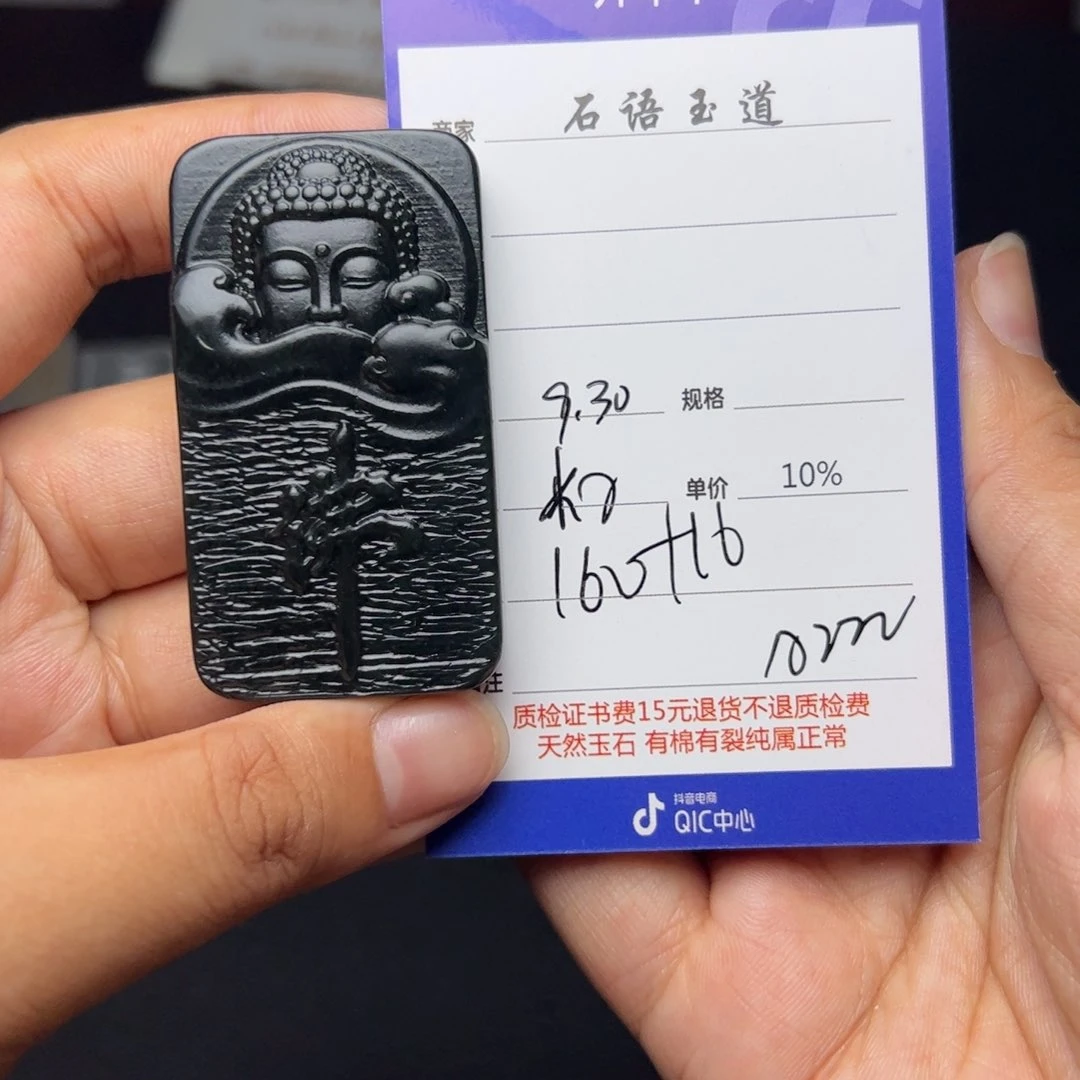 商家 石语玉道
9.30 规格
单价 10%
160+16
注
质检证书费15元退货不退质检费
天然玉石 有棉有裂纯属正常
抖音电商
QIC中心